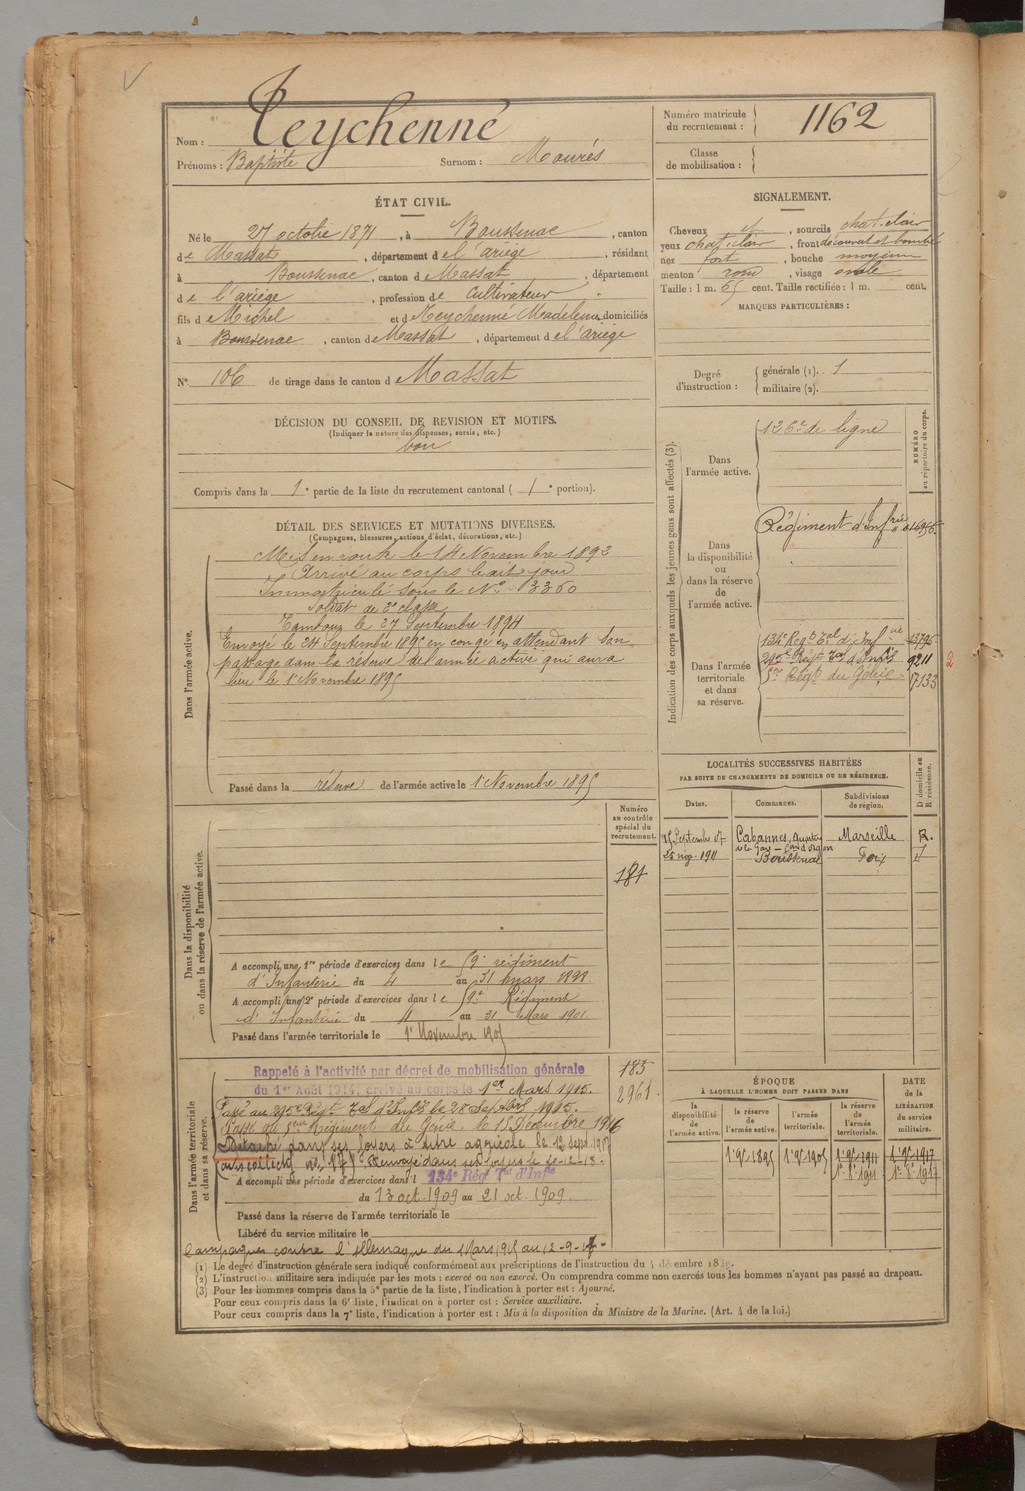 Nom : Teychenné
Prénoms : Baptiste Surnom : Mourés
Numéro matricule du recrutement : 1162
Classe de mobilisation :
ÉTAT CIVIL.
Né le 27 octobre 1871, à Boussenac, canton
de Massat, département de l'ariège, résidant
à Boussenac, canton de Massat, département
de l'ariège, profession de cultivateur
fils de Michel et de Teychenné Madeleine, domiciliés
à Boussenac, canton de Massat, département de l'ariège
N° 106 de tirage dans le canton de Massat
SIGNALEMENT.
Cheveux et, sourcils chat. clair
yeux chat. clair, front découvert et bombé
nez fort, bouche moyenne
menton rond, visage ovale
Taille : 1 m. 65 cent. Taille rectifiée : 1 m. cent.
MARQUES PARTICULIÈRES :
Degré d'instruction : générale (1). 1
militaire (2).
DÉCISION DU CONSEIL DE REVISION ET MOTIFS.
(Indiquer la nature des dispenses, sursis, etc.)
bon
Compris dans la 1e partie de la liste du recrutement cantonal ( 1e portion).
DÉTAIL DES SERVICES ET MUTATIONS DIVERSES.
(Campagnes, blessures, actions d'éclat, décorations, etc.)
Dans l'armée active.
Mis en route le 14 Novembre 1892
Arrivé au corps le dit jour
Immatriculé sous le N° 3360
Soldat de 2e classe
Tambour le 27 Septembre 1894
Envoyé le 24 Septembre 1895 en congé en attendant son
passage dans la réserve de l'armée active qui aura
lieu le 1 Novembre 1895
Passé dans la réserve de l'armée active le 1 Novembre 1895
Indication des corps auxquels les jeunes gens sont affectés (3).
NUMÉRO au répertoire du corps.
Dans l'armée active.
126e de ligne
Dans la disponibilité ou dans la réserve de l'armée active.
Régiment d'Infrie
Dans l'armée territoriale et dans sa réserve.
134e Régt Tal d'Infie 13795
215e Régt Ter d'Infie 9211
5e Régt du Génie 17133
2
LOCALITÉS SUCCESSIVES HABITÉES
PAR SUITE DE CHANGEMENTS DE DOMICILE OU DE RÉSIDENCE.
Dates. Communes. Subdivisions de région. D domicile ou R résidence.
15 Septembre 07 Cabannes, quartier Marseille R.
1911 Boussenac Foix
Dans la disponibilité ou dans la réserve de l'armée active.
Numéro au contrôle spécial du recrutement.
181
A accompli une 1re période d'exercices dans le 59e régiment
d'Infanterie du 4 au 31 mars 1898
A accompli une 2e période d'exercices dans le 59e Régiment
d'Infanterie du 4 au 31 Mars 1901
Passé dans l'armée territoriale le 1e Novembre 1905
Dans l'armée territoriale et dans sa réserve.
183
2961
Rappelé à l'activité par décret de mobilisation générale
du 1er Août 1914, arrivé au corps le 1er Mars 1915.
Passé au 215e Régt Tal d'Infie le 28 Septbre 1915.
Passé au 5me Régiment du Génie le 15 Décembre 1916
Détaché dans ses foyers à titre agricole le 12 sept. 1917
(avis collectif n° 17). Renvoyé dans ses foyers le 20-12-18.
A accompli une période d'exercices dans l 134e Régt Tal d'Infie
du 13 oct. 1909 au 21 oct. 1909.
Passé dans la réserve de l'armée territoriale le
Libéré du service militaire le
Campagnes contre l'Allemagne du 1 Mars 1915 au 12-9-17-
ÉPOQUE
À LAQUELLE L'HOMME DOIT PASSER DANS
la disponibilité de l'armée active. la réserve de l'armée active. l'armée territoriale. la réserve de l'armée territoriale. DATE de la LIBÉRATION du service militaire.
1e 9bre 1895 1e 9bre 1905 1e 9bre 1911 1e 9bre 1917
(1) Le degré d'instruction générale sera indiqué conformément aux prescriptions de l'instruction du 4 décembre 1889.
(2) L'instruction militaire sera indiquée par les mots : exercé ou non exercé. On comprendra comme non exercés tous les hommes n'ayant pas passé au drapeau.
(3) Pour les hommes compris dans la 5e partie de la liste, l'indication à porter est : Ajourné.
Pour ceux compris dans la 6e liste, l'indication à porter est : Service auxiliaire.
Pour ceux compris dans la 7e liste, l'indication à porter est : Mis à la disposition du Ministre de la Marine. (Art. 4 de la loi.)